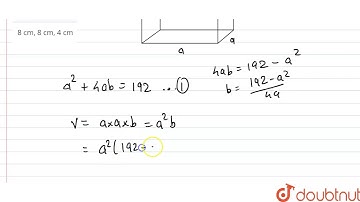 8 cm, 8 cm, 4 cm
a
a
a² + 4ab = 192 ...①
4ab = 192 - a²
b = (192-a²)/4a
V = a×a×b = a²b
= a²(192-
doubtnut